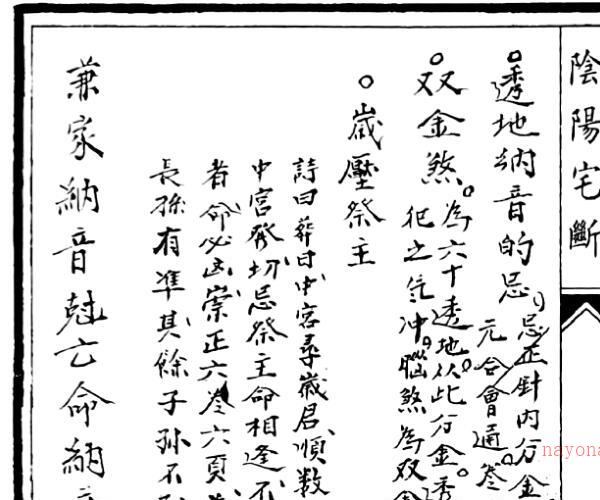 陰陽宅斷
透地納音的忌
忌正針內分金
元合會通叁
双金煞
為六十透地从此分金透
犯之氣冲腦煞為双金
歲壓祭主
詩曰葬日中宮尋歲君順数
中宮發切忌祭主命相逢不
者命必凶崇正六卷六頁
長孫有準其餘子孫不
兼家納音尅亡命納音
nayona